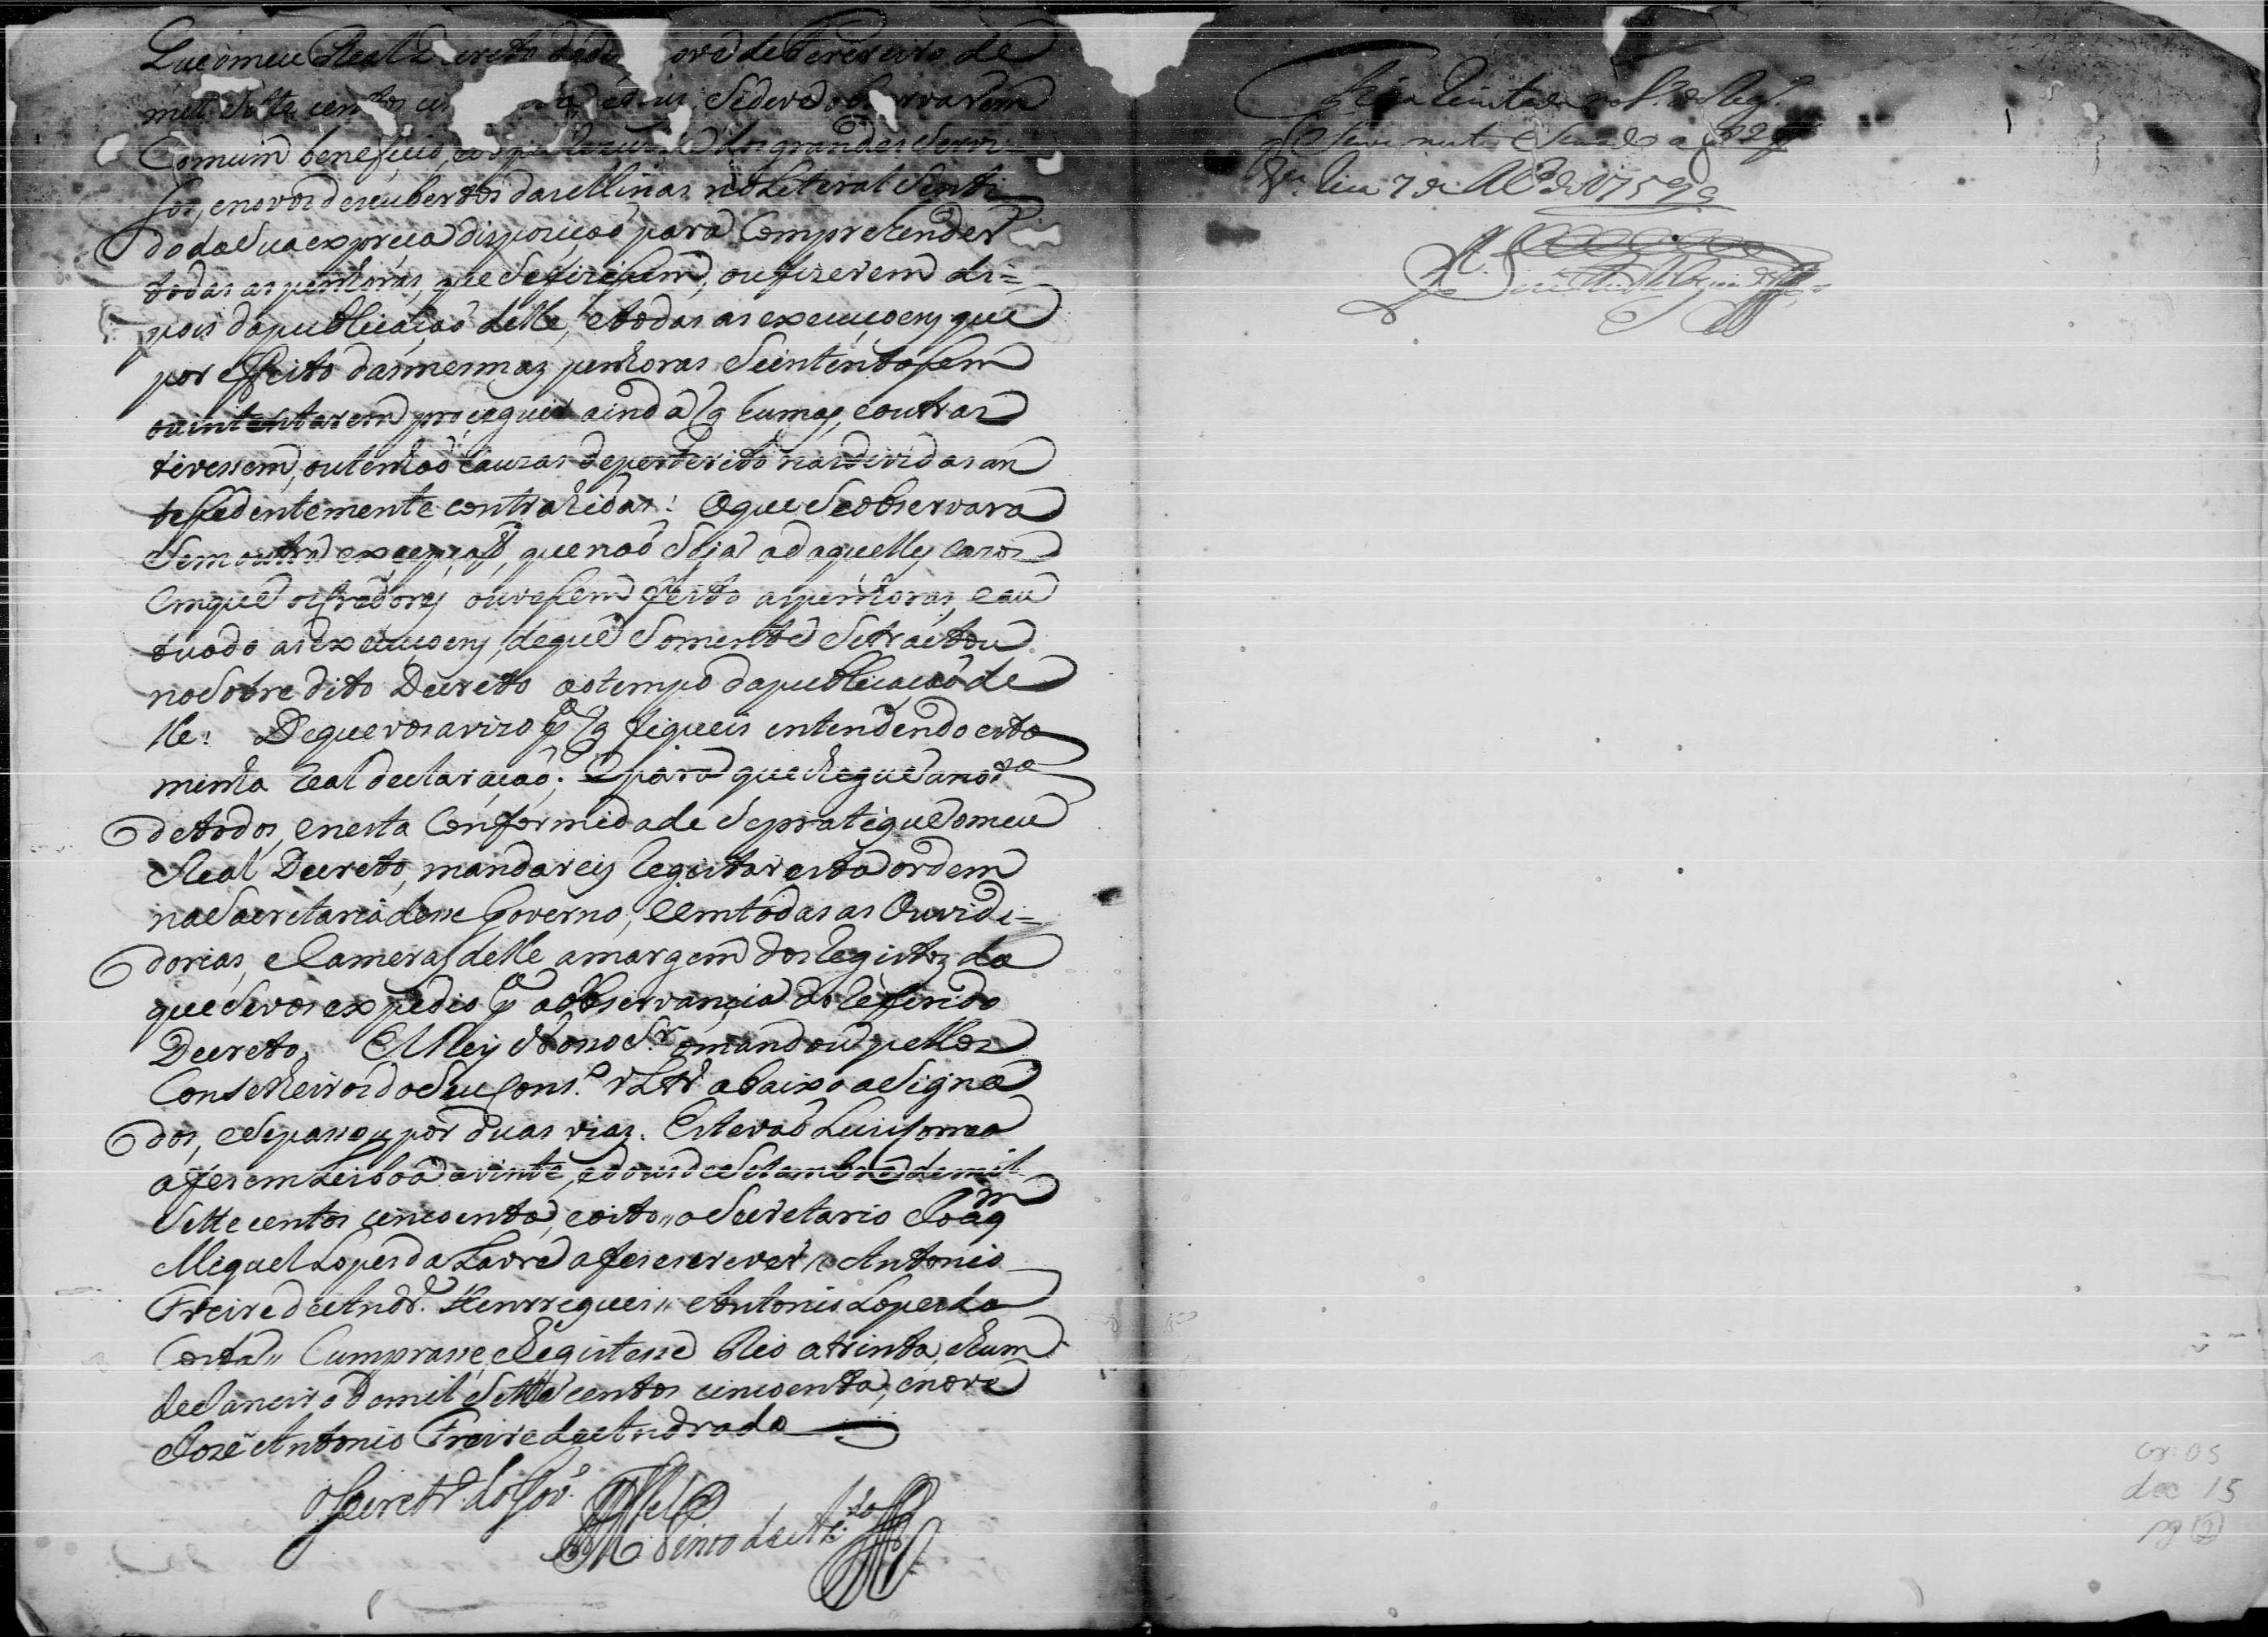 Que o meu Real Decreto de de Fevereiro de
mil Sette centos Sedeve observar em
Comum beneficio dos grandes Servi-
sos, e novos descubertos das Minas no Literal Senti
do da Sua expreca dispoziçaõ para Comprehender
todas as penhoras, que Sefizesem, ou fizerem di=
pois da publicaçaõ delle, e todas as execuçoens que
por effeito das mesmas penhoras Seintentasem
ou intentarem proceguir ainda q humas, e outras
tivessem, ou tenhaõ cauzas de preterito nas dividas an
teссedentemente contrahidas: O que Seobservará
Sem outra excepçaõ, que naõ Seja adaquelles cazos
Em que os Credores ouvesem feito as penhoras, e au
tuado as execuçoens, de que Somente Setractou
no Sobre dito Decreto ao tempo da publicaçaõ de
lle: De que vos avizo pª q fiqueis entendendo esta
minha Real declaraçaõ; E para que chegue anotª
de todos, e nesta Conformidade Sepratique o meu
Real Decreto, mandareis Registar esta ordem
na Sacretaria desse Governo, e em todas as Ouvidi=
dorias, e Cameras delle a margem dos Registos da
que Sevos expedio pª a observancia do Referido
Decreto, El Rey Nosso Sr. o mandou pellos
Conselheiros do Seu Cons.º Ultrº abaixo aSigna
dos, e Sepassou por duas vias. Estevaõ Luis Correa
a fes em Lisboa a vinte, e dous de Setembro de mil
Sette centos cincoenta, e oito,, o Secretario Joaqm
Miguel Lopes da Lavre a fes escrever,, Antonio
Freire de Andr.e Henrreques,, Antonio Lopes da
Costa,, Cumprasse, e Registesse Rio a trinta, e hum
de Janeiro de mil Sette centos cincoenta, e nove
Jozé Antonio Freire de Andrada
O Secretrº do Govº
Pinto de
7 de de 1759
cx: 05
doc 15
pg 2